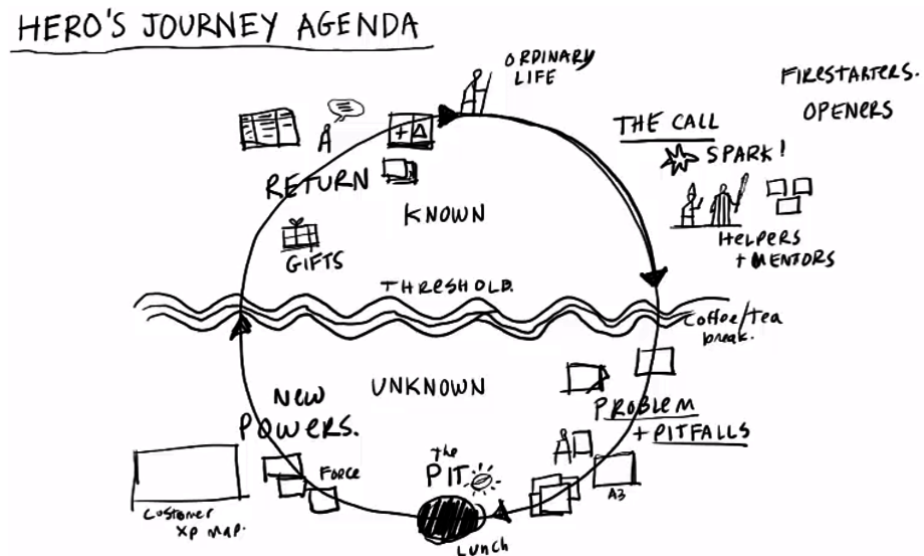 HERO'S JOURNEY AGENDA
ORDINARY
LIFE
FIRESTARTERS.
OPENERS
THE CALL
SPARK!
HELPERS
+ MENTORS
+ Δ
RETURN
KNOWN
GIFTS
THRESHOLD.
Coffee/tea
break.
UNKNOWN
PROBLEM
+ PITFALLS
A3
the
PIT
Lunch
NEW
POWERS.
FORCE
Costomer
XP map.